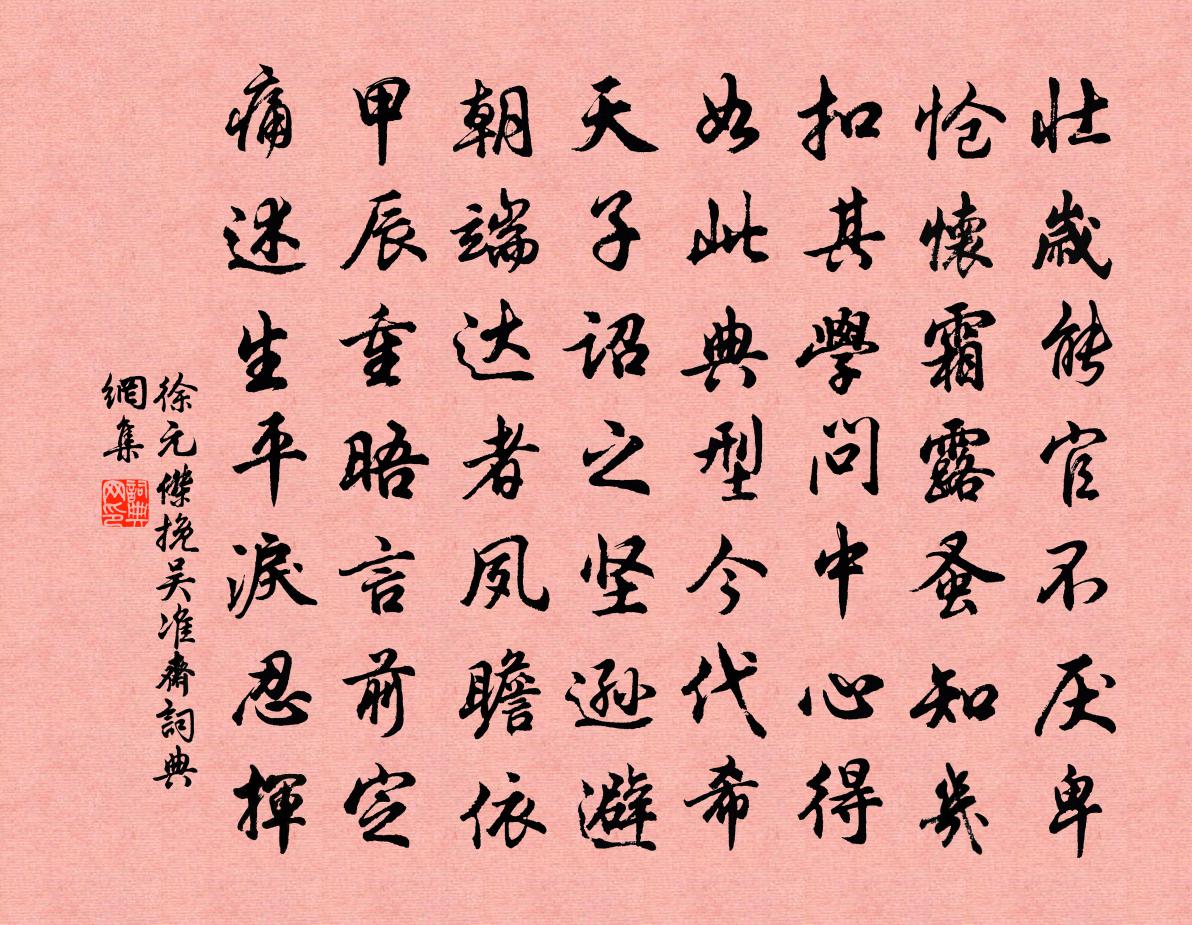 壮歲能官不厌卑
怆懷霜露蚤知幾
扣其學問中心得
如此典型今代希
天子詔之坚遜避
朝端达者夙瞻依
甲辰重晤言前定
痛述生平淚忍揮
徐元傑挽吴准齋詞典
網集
詞典网印